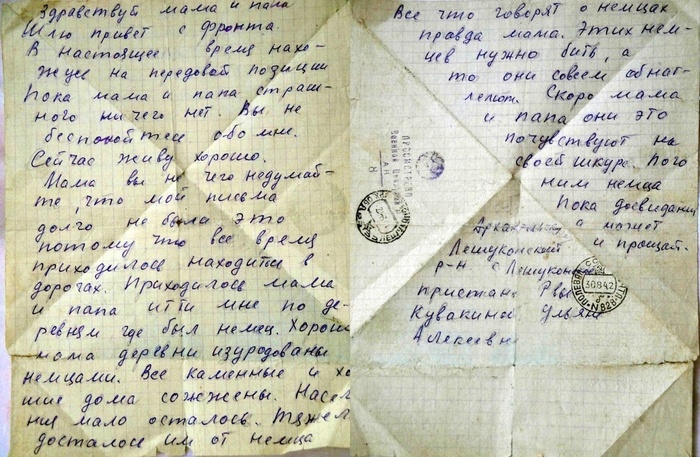 Здравствуй мама и папа
Шлю привет с фронта.
В настоящее время нахо-
жусь на передовой позиции
Пока мама и папа страш-
ного ни чего нет. Вы не
беспокойтесь обо мне.
Сейчас живу хорошо.
Мама вы не чего недумай-
те, что мой письма
долго не была это
потому что все время
приходилось находиться в
дорогах. Приходилось мама
и папа итти мне по де-
ревням где был немец. Хорош
мама деревни изуродованы
немцами. Все каменные и хо
шие дома сожжены. Насел
ния мало осталось. Тяжел
досталось им от немца
Все что говорят о немцах
правда мама. Этих нем-
цев нужно бить, а
то они совсем обнаг-
леют. Скоро мама
и папа они это
почувствуют на
своей шкуре. Пого
ним немца
Пока досвидани
а может
и прощай.
Просмотрено
Военной Цензурой
8
Архангельску
Лешуконский
р-н с Лешуконско
пристань
Кувакиной Ульяне
Алексеевн
30842